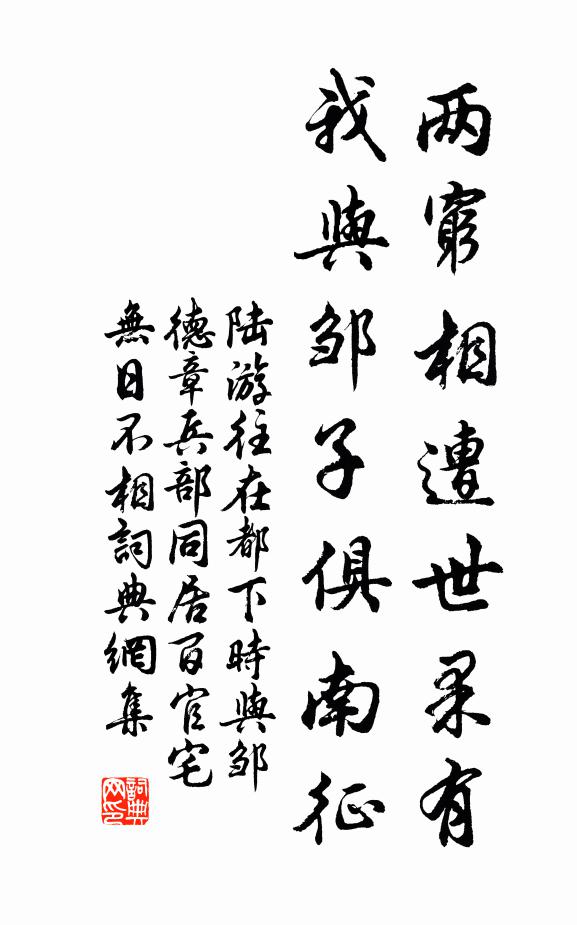 两窮相遭世果有
我與邹子俱南征
陆游往在都下時與邹
德章兵部同居百官宅
無日不相詞典網集
詞典网印